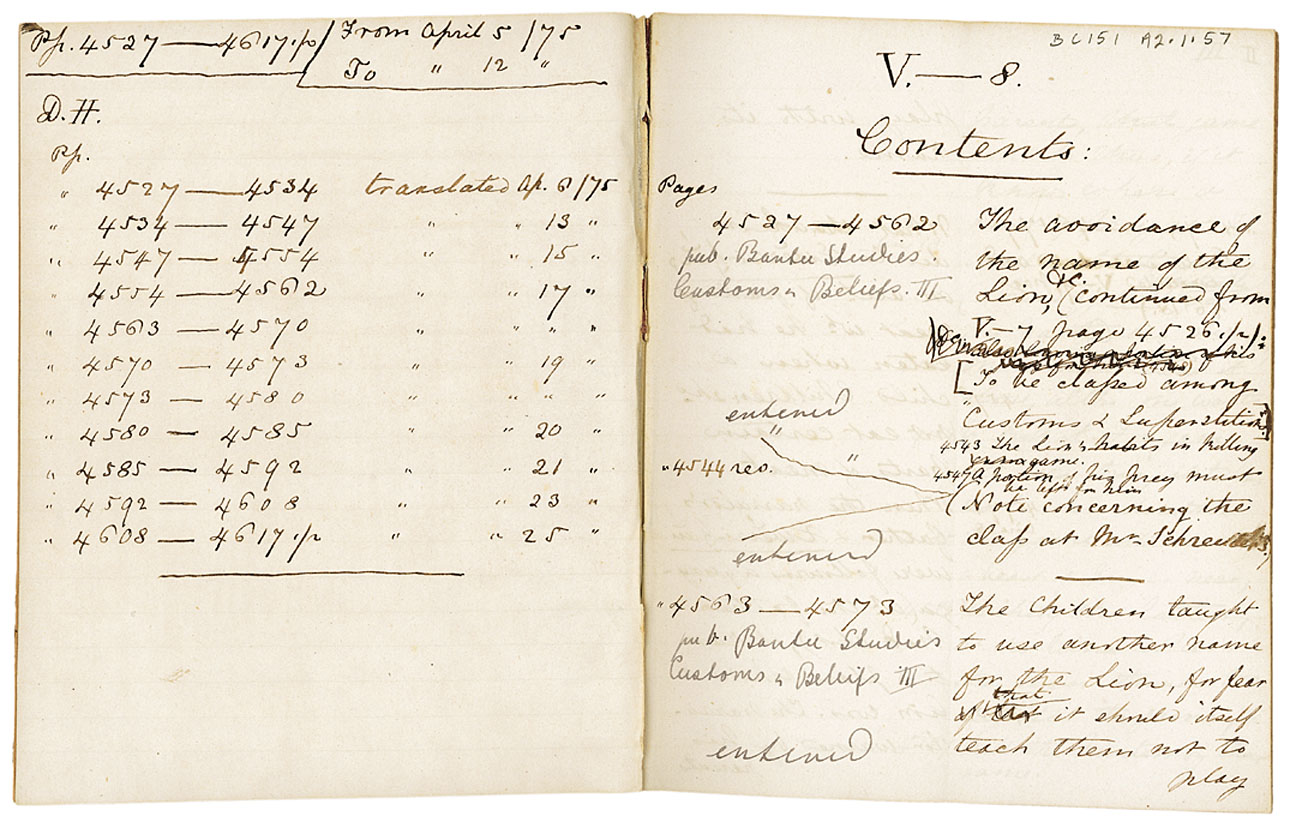 Pp. 4527 — 4617.½ / From April 5 /75
To " 12 "
D. H.
Pp.
" 4527 — 4534 translated Ap. 6 /75
" 4534 — 4547 " " 13 "
" 4547 — 4554 " " 15 "
" 4554 — 4562 " " 17 "
" 4563 — 4570 " " " "
" 4570 — 4573 " " 19 "
" 4573 — 4580 " " " "
" 4580 — 4585 " " 20 "
" 4585 — 4592 " " 21 "
" 4592 — 4608 " " 23 "
" 4608 — 4617.½ " " 25 "
BC151 A2.1.57
V. — 8.
Contents:
Pages
4527 — 4562 The avoidance of
pub. Bantu Studies. the name of the
Customs & Beliefs. III Lion, &c. (continued from
V. — 7 page 4526.½):
[To be classed among
entered Customs & Superstitions.]
" " 4543 The Lion's habits in killing
game.
" 4544 reo. 4547 A portion of his prey must
be left for him
(Note concerning the
entered class at Mr Schreuder's.)
" 4563 — 4573 The Children taught
pub. Bantu Studies to use another name
Customs & Beliefs III for the Lion, for fear
that it should itself
entered teach them not to
play